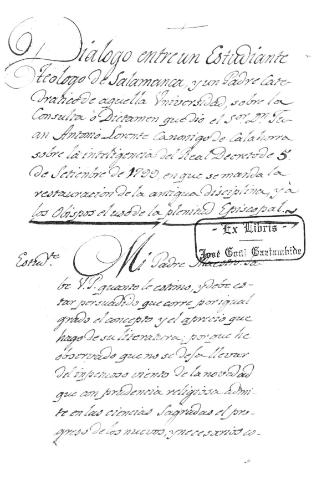 Dialogo entre un Estudiante
Teologo de Salamanca, y un Padre Cate-
dratico de aquella Universidad, sobre la
Consulta ò Dictamen que diò el Sr. Dn. Ju-
an Antonio Llorente Canonigo de Calahorra
sobre la inteligencia del Real Decreto de 5
de Setiembre de 1799, en que se manda la
restauracion de la antigua disciplina, y à
los Obispos el uso de la plenitud Episcopal.
Ex Libris
José Goñi Gaztambide
Estudte.
Mi Padre Maestro: sa-
be V. P. quanto le estimo, y debe es-
tar persuadido que corre por igual
grado el concepto y el aprecio que
hago de su literatura; porque he
observado que no se deja llevar
del impetuoso viento de la novedad
que con prudencia religiosa admi-
te en las ciencias sagradas el pro-
greso de los nuevos, y necesarios co-